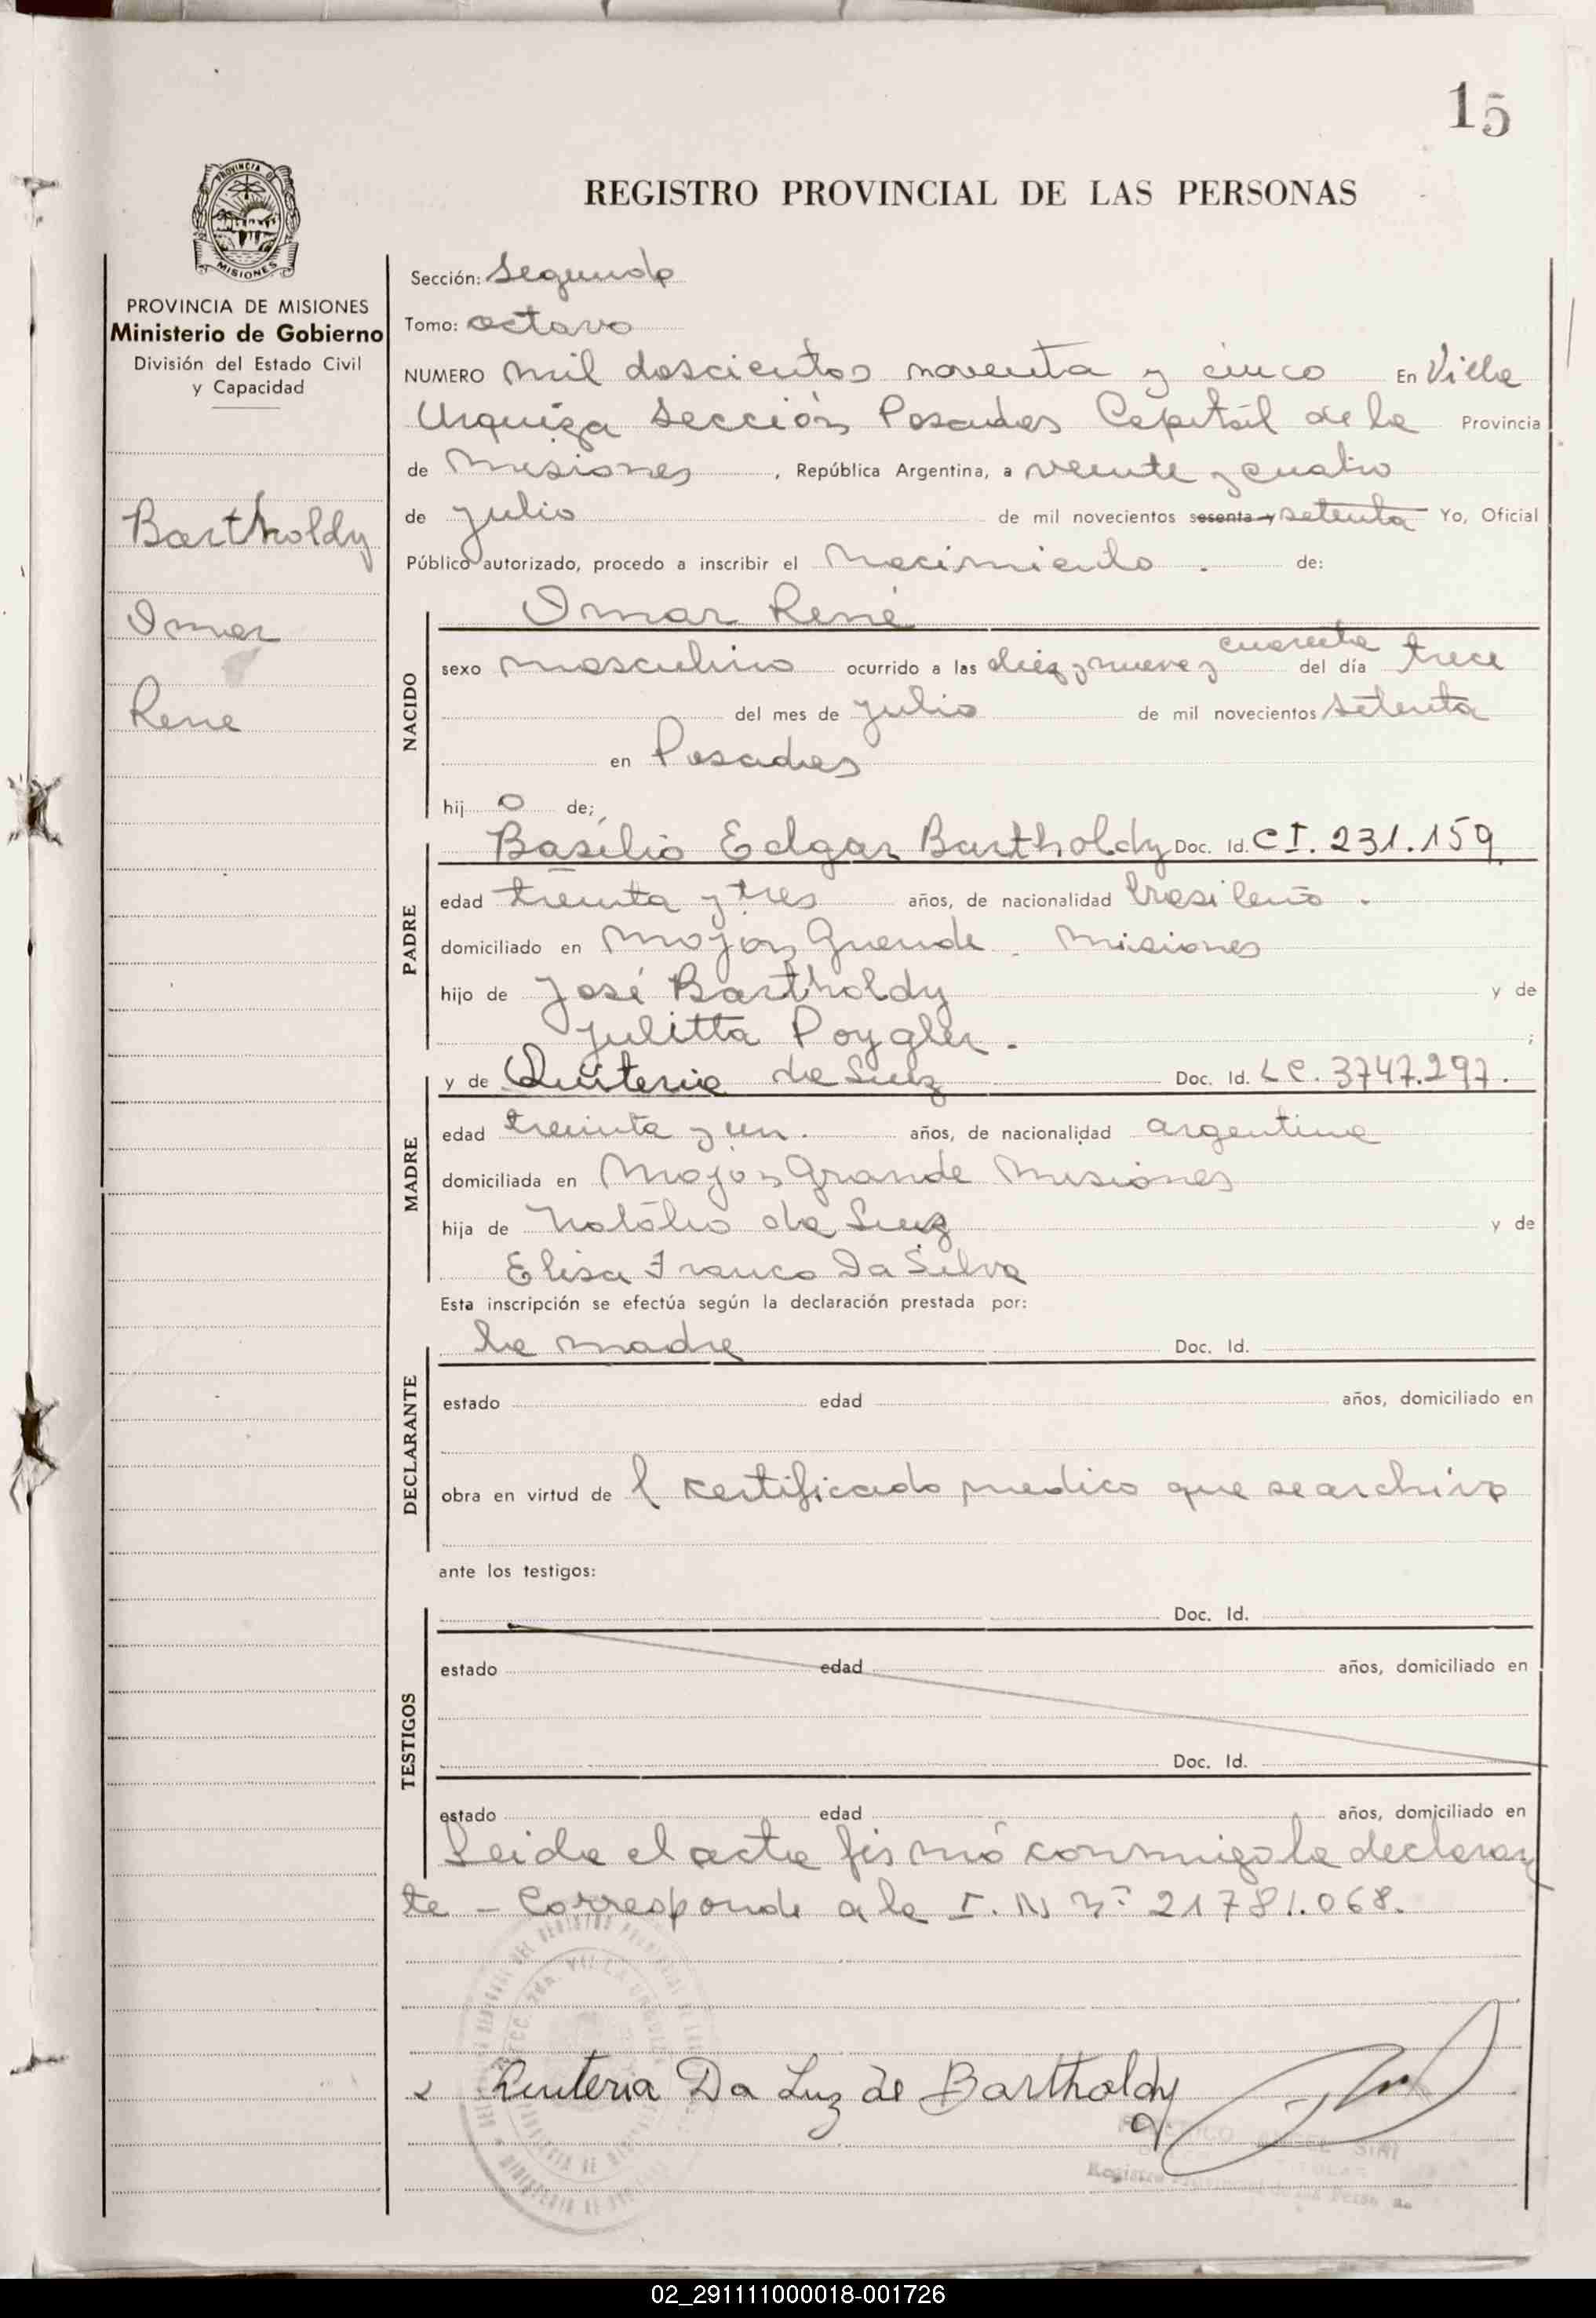 15
PROVINCIA DE
MISIONES
REGISTRO PROVINCIAL DE LAS PERSONAS
PROVINCIA DE MISIONES
Ministerio de Gobierno
División del Estado Civil
y Capacidad
Bartholdy
Omar
Rene
Sección: Segunda
Tomo: octavo
NUMERO mil doscientos noventa y cinco En Villa
Urquiza Sección Posadas Capital de la Provincia
de Misiones, República Argentina, a veinte y cuatro
de julio de mil novecientos sesenta y setenta Yo, Oficial
Público autorizado, procedo a inscribir el Nacimiento. de:
NACIDO
Omar René
sexo masculino ocurrido a las diez y nueve y cuarenta del día trece
del mes de julio de mil novecientos setenta
en Posadas
hij o de;
PADRE
Basilio Edgar Bartholdy Doc. Id. C I. 231.159
edad treinta y tres años, de nacionalidad brasileño.
domiciliado en Mojon Grande Misiones
hijo de José Bartholdy y de
Julitta Poygler. ;
MADRE
y de Quiteria da Luz Doc. Id. L C. 3747.297.
edad treinta y un. años, de nacionalidad argentina
domiciliada en Mojón Grande Misiones
hija de Natálio da Luz y de
Elisa Franco Da Silva
Esta inscripción se efectúa según la declaración prestada por:
DECLARANTE
la madre Doc. Id.
estado edad años, domiciliado en
obra en virtud de l certificado medico que se archiva
ante los testigos:
TESTIGOS
Doc. Id.
estado edad años, domiciliado en
Doc. Id.
estado edad años, domiciliado en
Leida el acta firmó conmigo la declaran
te - Corresponde a la I. N Nº 21781.068.
Quiteria Da Luz de Bartholdy
02_291111000018-001726